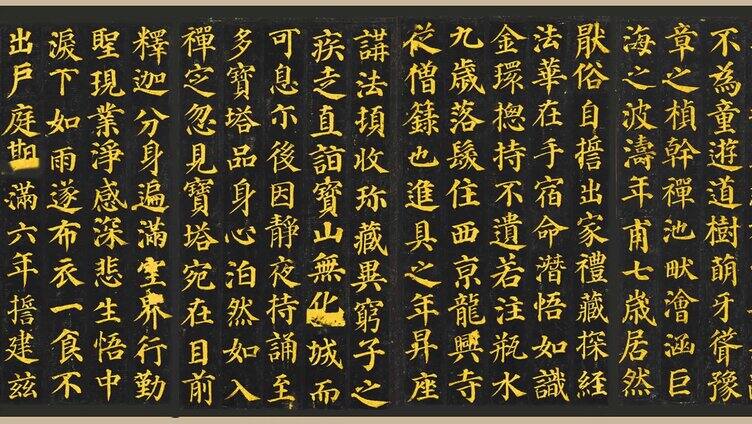 不為童遊道樹萌牙聳豫
章之楨幹禪池畎澮涵巨
海之波濤年甫七歲居然
猒俗自誓出家禮藏探經
法華在手宿命潛悟如識
金環揔持不遺若注瓶水
九歲落髮住西京龍興寺
從僧籙也進具之年昇座
講法頓收珎藏異窮子之
疾走直詣寶山無化城而
可息尒後因靜夜持誦至
多寶塔品身心泊然如入
禪定忽見寶塔宛在目前
釋迦分身遍滿空界行勤
聖現業淨感深悲生悟中
淚下如雨遂布衣一食不
出戶庭期滿六年誓建茲